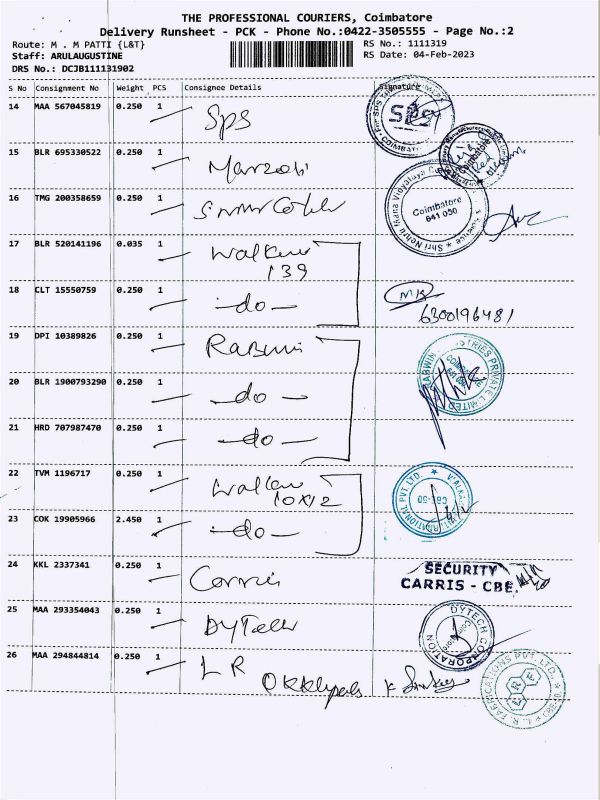 THE PROFESSIONAL COURIERS, Coimbatore
Delivery Runsheet - PCK - Phone No.:0422-3505555 - Page No.:2
Route: M . M PATTI {L&T} RS No.: 1111319
Staff: ARULAUGUSTINE RS Date: 04-Feb-2023
DRS No.: DCJB111131902
S No Consignment No Weight PCS Consignee Details Signature
14 MAA 567045819 0.250 1 SPS
SPS
COIMBATORE
15 BLR 695330522 0.250 1
Coimbatore
16 TMG 200358659 0.250 1
Coimbatore
641 050
17 BLR 520141196 0.035 1 Walker
139
18 CLT 15550759 0.250 1 -do-
6300196481
19 DPI 10389826 0.250 1 Rabwin
20 BLR 1900793290 0.250 1 -do-
21 HRD 707987470 0.250 1 -do-
22 TVM 1196717 0.250 1 Walker
10X12
23 COK 19905966 2.450 1 -do-
24 KKL 2337341 0.250 1 Carris
SECURITY
CARRIS - CBE
25 MAA 293354043 0.250 1 DyTech
DYTECH CORPORATION
26 MAA 294844814 0.250 1 L R
L.R. FABRICATIONS PVT. LTD.
LRF